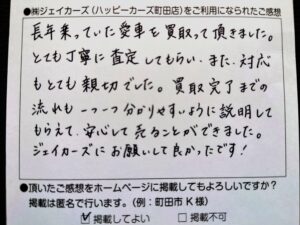 ●㈱ジェイカーズ（ハッピーカーズ町田店）をご利用になられたご感想
長年乗っていた愛車を買取って頂きました。
とても丁寧に査定してもらい、また、対応
もとても親切でした。買取完了までの
流れも一つ一つ分かりやすいように説明して
もらえて、安心して売ることができました。
ジェイカーズにお願いして良かったです！
●頂いたご感想をホームページに掲載してもよろしいですか？
掲載は匿名で行います。（例：町田市 K 様）
☑ 掲載してよい　□ 掲載不可